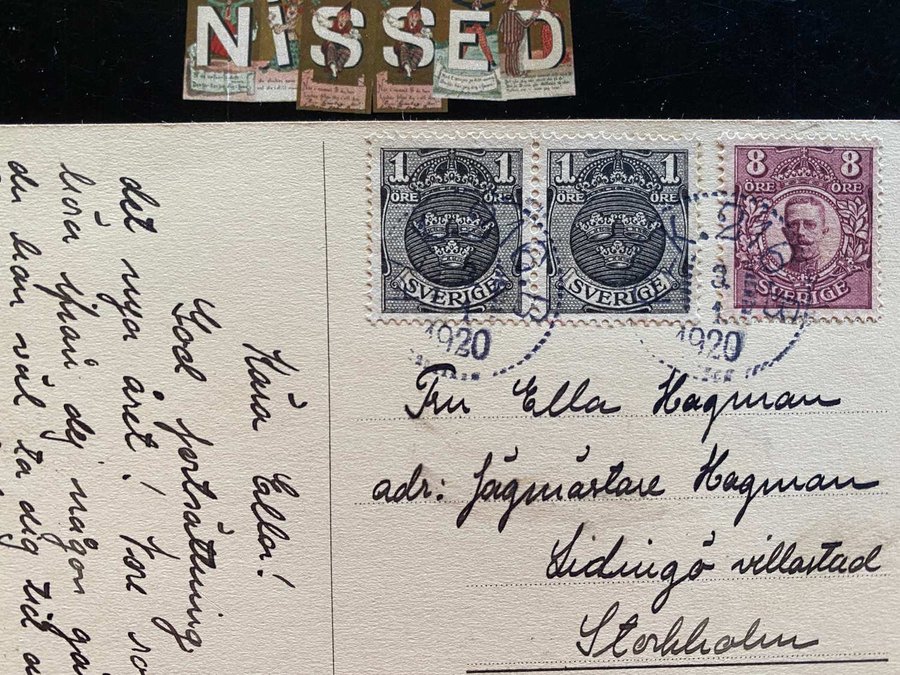 NISSED
1 1
ÖRE ÖRE
SVERIGE
1 1
ÖRE ÖRE
SVERIGE
8 8
ÖRE ÖRE
SVERIGE
1920
3.
1920
Fru Ella Hagman
adr: Jägmästare Hagman
Lidingö villastad
Stockholm
Kära Ella!
God fortsättning
det nya året!
höra ifrån dej någon
du kan väl ta dig tid